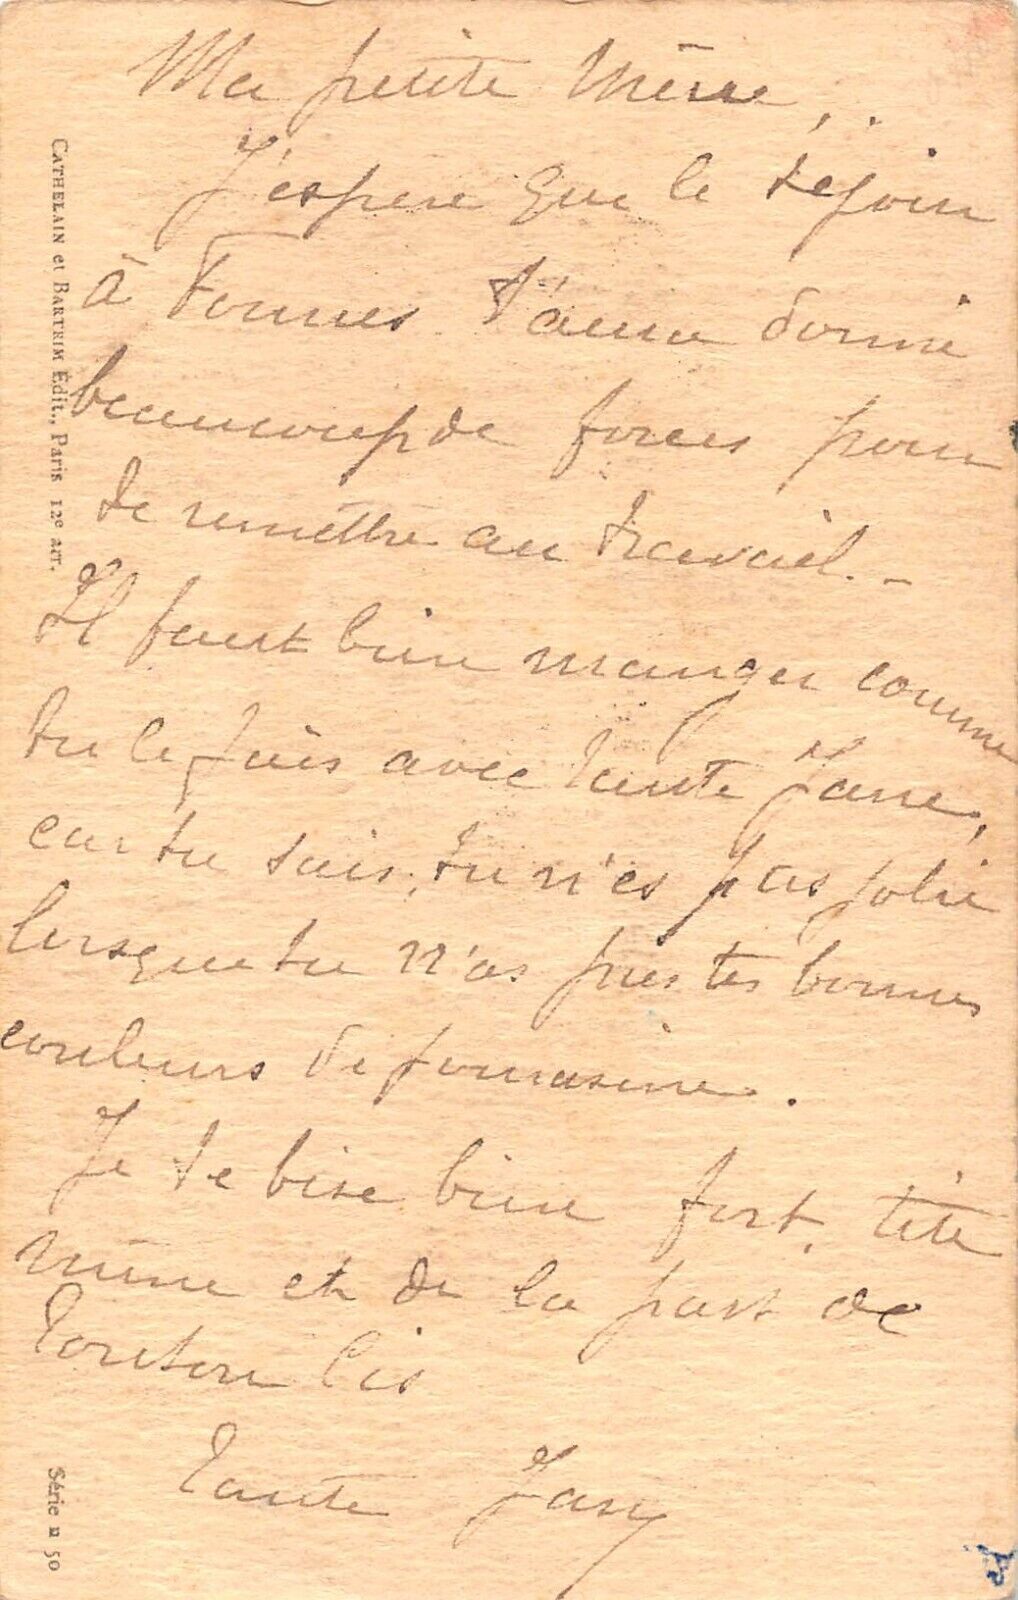 Ma petite
J'espere que le séjour
à t'aura donné
beaucoup de forces pour
te remettre au travail. -
Il faut bien manger comme
tu le fais avec tante Jane,
car tu sais, tu n'es pas jolie
lorsque tu n'as pas tes bonnes
couleurs de
Je te bise bien fort, tite
et de la part de
Tonton
Tante Jany
CATHELAIN et BARTRIM Édit., Paris 12e arr.
Série n 50